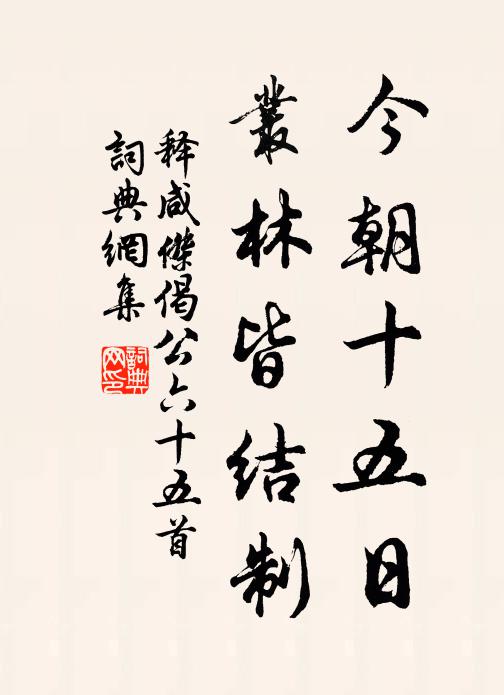 今朝十五日
叢林皆结制
释咸傑偈公六十五首
詞典網集
詞典网印